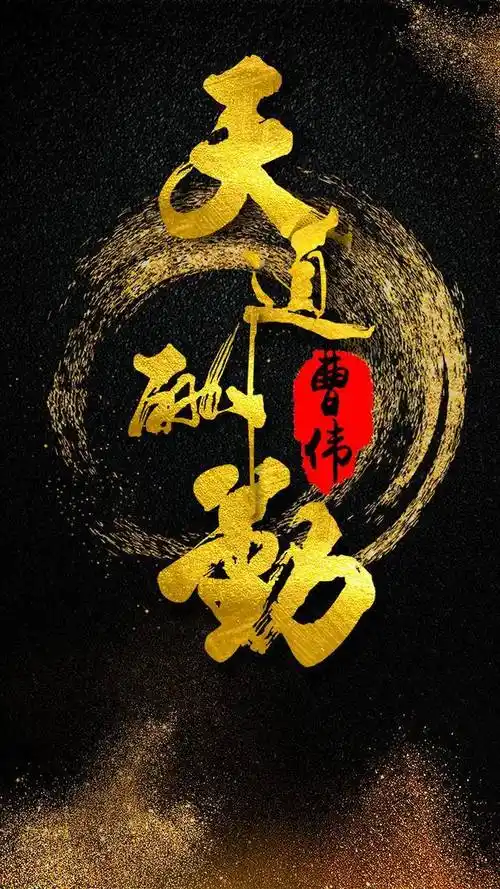 天道酬勤
曹伟